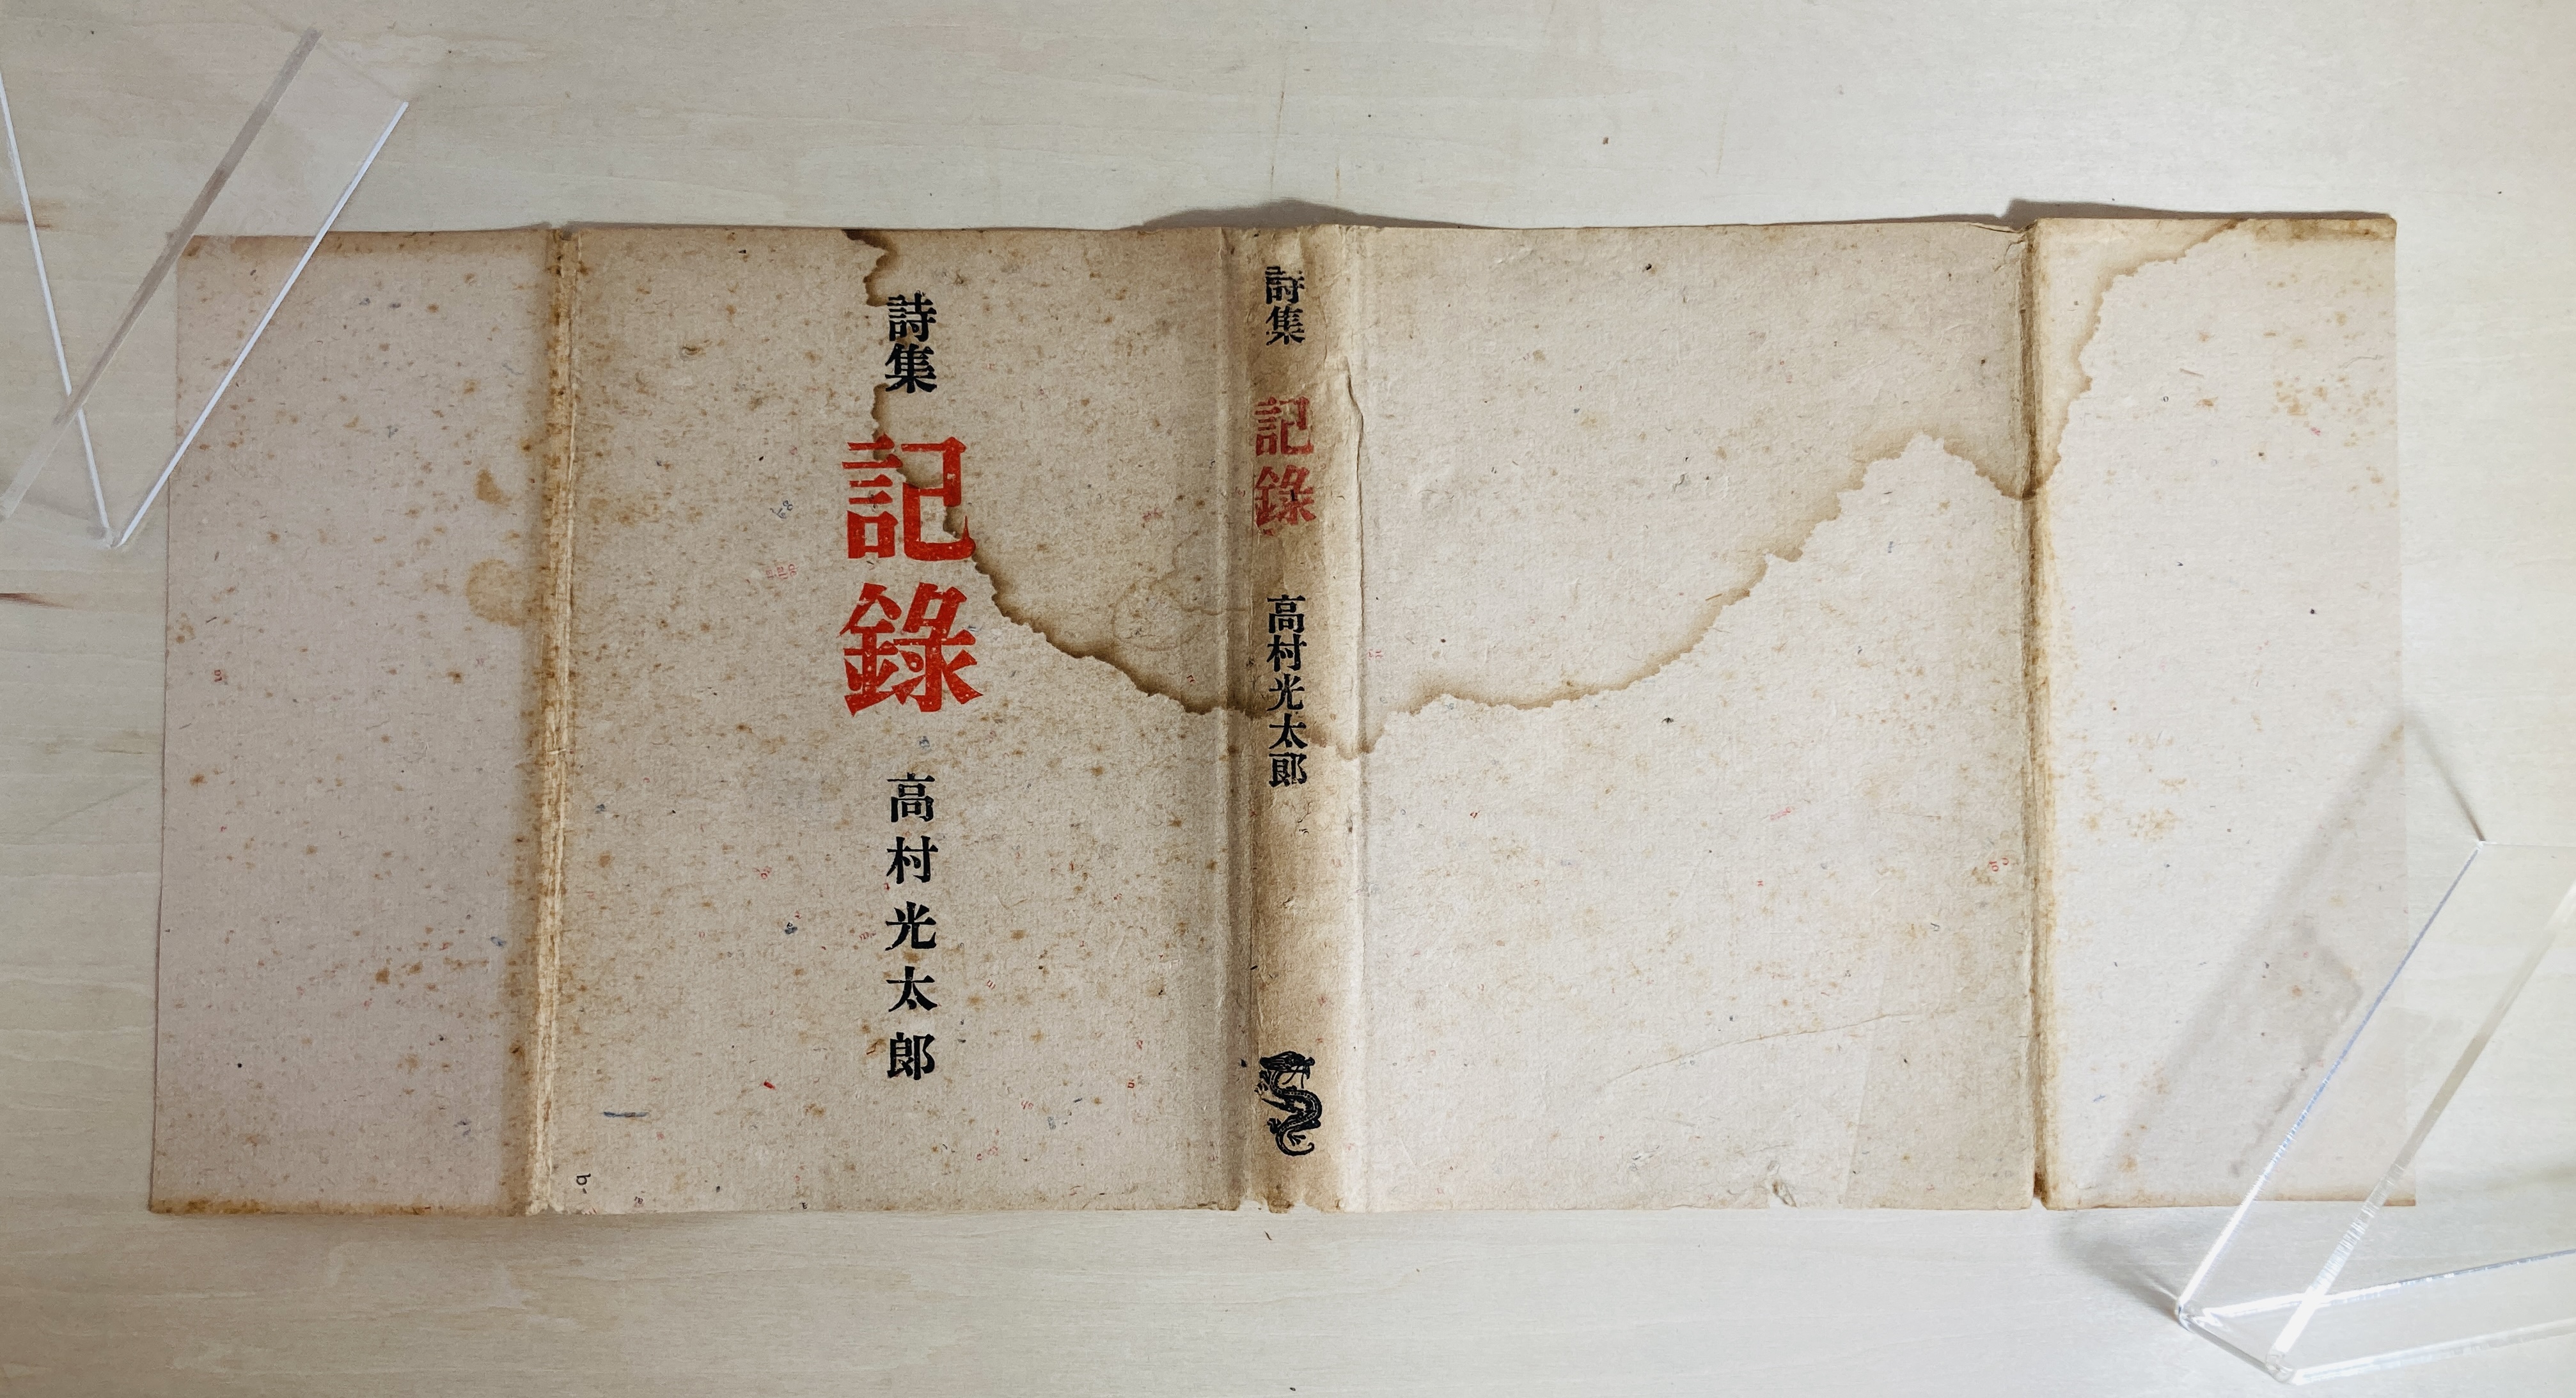 詩集
記錄
高村光太郎
詩集
記錄
高村光太郎